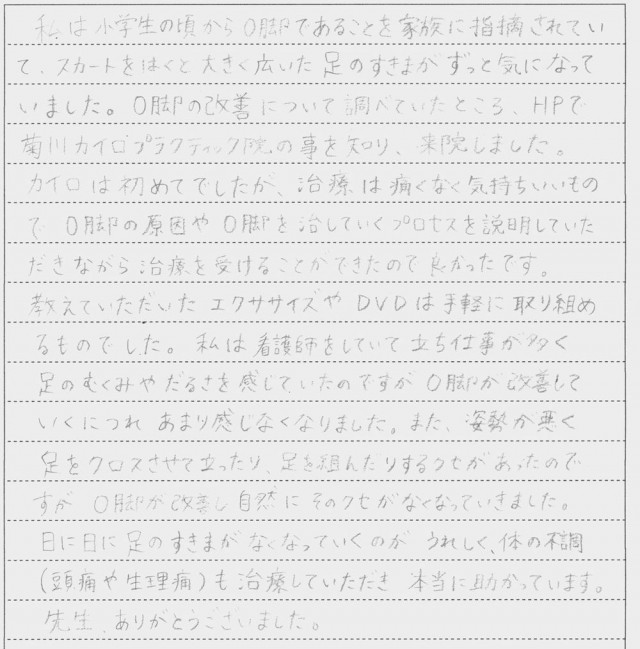 私は小学生の頃からO脚であることを家族に指摘されてい
て、スカートをはくと大きく広いた足のすきまがずっと気になって
いました。O脚の改善について調べていたところ、HPで
菊川カイロプラクティック院の事を知り、来院しました。
カイロは初めてでしたが、治療は痛くなく気持ちいいもの
で O脚の原因や O脚を治していくプロセスを説明していた
だきながら治療を受けることができたので良かったです。
教えていただいた エクササイズや DVDは手軽に取り組め
るものでした。私は看護師をしていて立ち仕事が多く
足のむくみやだるさを感じていたのですが O脚が改善して
いくにつれ あまり感じなくなりました。また、姿勢が悪く
足をクロスさせて立ったり、足を組んだりするクセがあったので
すが O脚が改善し自然に そのクセがなくなっていきました。
日に日に足のすきまがなくなっていくのが うれしく、体の不調
(頭痛や生理痛)も治療していただき 本当に助かっています。
先生、ありがとうございました。